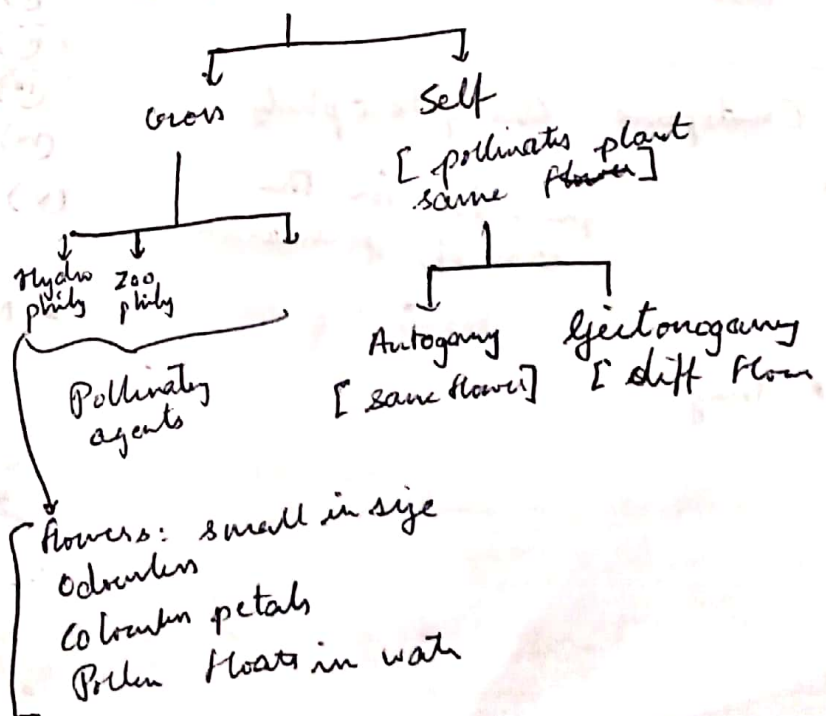 Cross
Self
[ pollinates plant
same flower ]
Hydro
phily
Zoo
phily
Pollinating
agents
Autogamy
[ same flower ]
Geitonogamy
[ diff flower
flowers: small in size
Odourless
Colourless petals
Pollen floats in water